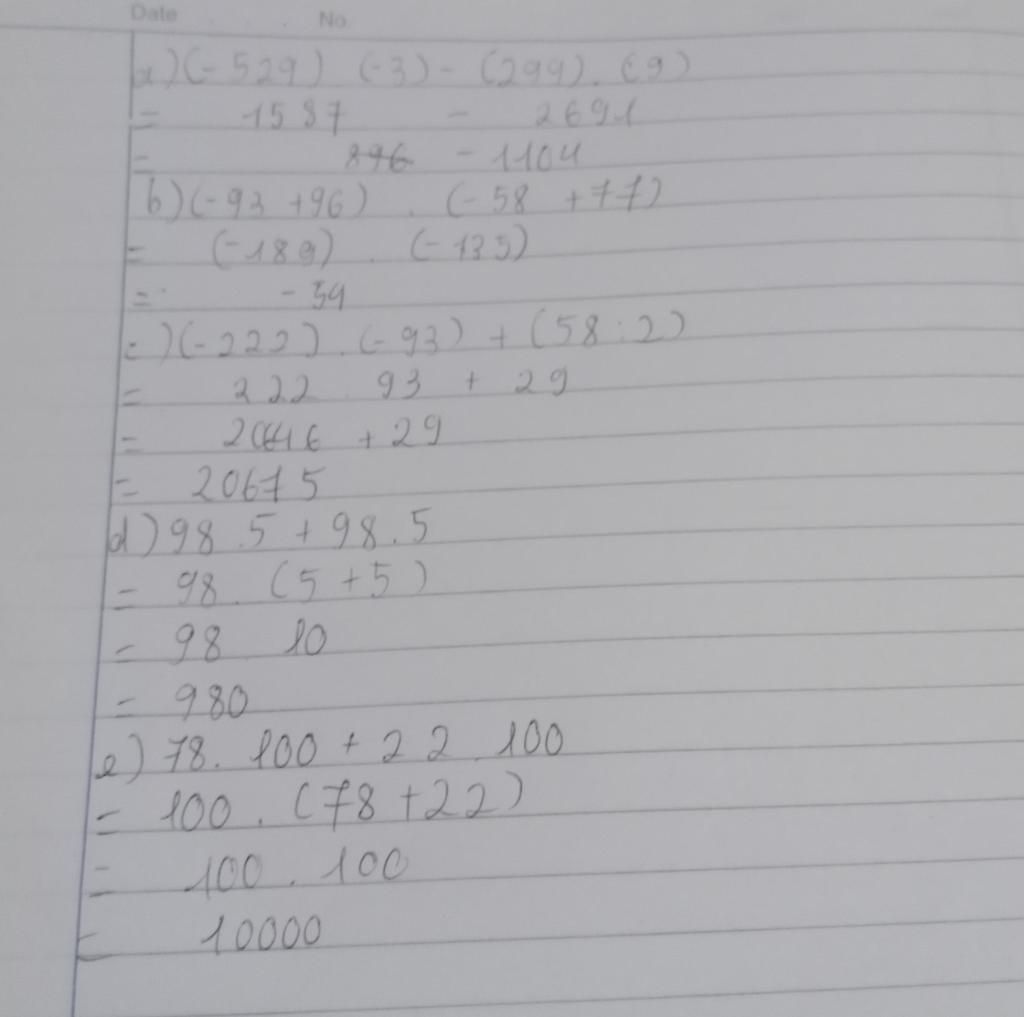 Date . . No.
a) (-529) (-3) - (299). (9)
= 1587 - 2691
= 896 - 1104
b) (-93 +96) . (-58 +77)
= (-189) . (-135)
= -54
c) (-222) . (-93) + (58:2)
= 222 . 93 + 29
= 20646 + 29
= 20675
d) 98.5 + 98.5
= 98. (5+5)
= 98 10
= 980
e) 78. 100 + 22 100
= 100 . (78 +22)
= 100 . 100
= 10000